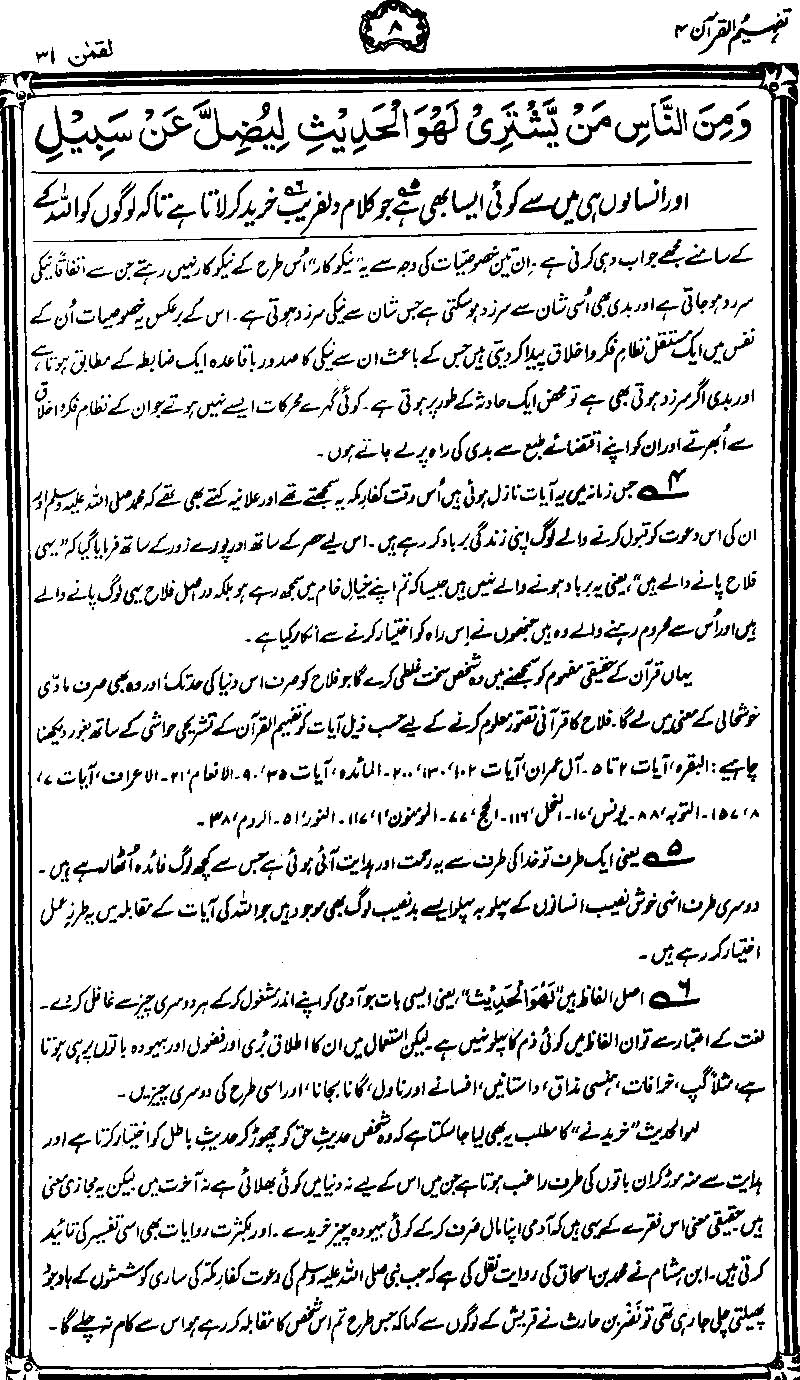 تفہیم القرآن ۴
۸
لقمٰن ۳۱
وَمِنَ النَّاسِ مَنْ يَّشْتَرِىْ لَهْوَ الْحَدِيْثِ لِيُضِلَّ عَنْ سَبِيْلِ
اور انسانوں ہی میں سے کوئی ایسا بھی ہے۵ جو کلام دلفریب۶ خرید کر لاتا ہے تاکہ لوگوں کو اللہ کے
کے سامنے مجھے جواب دہی کرنی ہے۔ اِن تین خصوصیات کی وجہ سے یہ ”نیکوکار“ اُس طرح کے نیکوکار نہیں رہتے جن سے اتفاقاً نیکی
سرزد ہو جاتی ہے اور بدی بھی اُسی شان سے سرزد ہو سکتی ہے جس شان سے نیکی سرزد ہوتی ہے۔ اس کے برعکس یہ خصوصیات اُن کے
نفس میں ایک مستقل نظامِ فکر و اخلاق پیدا کر دیتی ہیں جس کے باعث ان سے نیکی کا صدور باقاعدہ ایک ضابطہ کے مطابق ہوتا ہے
اور بدی اگر سرزد ہوتی بھی ہے تو محض ایک حادثہ کے طور پر ہوتی ہے۔ کوئی گہرے محرکات ایسے نہیں ہوتے جو ان کے نظامِ فکر و اخلاق
سے اُبھرتے اور ان کو اپنے اقتضائے طبع سے بدی کی راہ پر لے جاتے ہوں۔
۴ جس زمانہ میں یہ آیات نازل ہوئی ہیں اُس وقت کفارِ مکہ یہ سمجھتے تھے اور علانیہ کہتے بھی تھے کہ محمد صلی اللہ علیہ وسلم اور
ان کی اس دعوت کو قبول کرنے والے لوگ اپنی زندگی برباد کر رہے ہیں۔ اس لیے حصر کے ساتھ اور پورے زور کے ساتھ فرمایا گیا کہ ”یہی
فلاح پانے والے ہیں“، یعنی یہ برباد ہونے والے نہیں ہیں جیسا کہ تم اپنے خیال خام میں سمجھ رہے ہو بلکہ دراصل فلاح یہی لوگ پانے والے
ہیں اور اُس سے محروم رہنے والے وہ ہیں جنھوں نے اِس راہ کو اختیار کرنے سے انکار کیا ہے۔
یہاں قرآن کے حقیقی مفہوم کو سمجھنے میں وہ شخص سخت غلطی کرے گا جو فلاح کو صرف اس دنیا کی حد تک، اور وہ بھی صرف مادّی
خوشحالی کے معنی میں لے گا۔ فلاح کا قرآنی تصور معلوم کرنے کے لیے حسب ذیل آیات کو تفہیم القرآن کے تشریحی حواشی کے ساتھ بغور دیکھنا
چاہیے: البقرہ، آیات ۲ تا ۵۔ آل عمران، آیات ۱۰۲، ۱۳۰، ۲۰۰۔ المائدہ، آیات ۳۵، ۹۰۔ الانعام، ۲۱۔ الاعراف، آیات ۷،
۸، ۱۵۷۔ التوبہ، ۸۸۔ یونس، ۱۷۔ النحل، ۱۱۶۔ الحج، ۷۷۔ المومنون، ۱، ۱۱۷۔ النور، ۵۱۔ الروم، ۳۸۔
۵ یعنی ایک طرف تو خدا کی طرف سے یہ رحمت اور ہدایت آئی ہوئی ہے جس سے کچھ لوگ فائدہ اُٹھا رہے ہیں۔
دوسری طرف انہی خوش نصیب انسانوں کے پہلو بہ پہلو ایسے بدنصیب لوگ بھی موجود ہیں جو اللہ کی آیات کے مقابلہ میں یہ طرزِ عمل
اختیار کر رہے ہیں۔
۶ اصل الفاظ ہیں ”لَهْوَ الْحَدِيْث“، یعنی ایسی بات جو آدمی کو اپنے اندر مشغول کر کے ہر دوسری چیز سے غافل کر دے۔
لغت کے اعتبار سے تو ان الفاظ میں کوئی ذم کا پہلو نہیں ہے۔ لیکن استعمال میں ان کا اطلاق بُری اور فضول اور بیہودہ باتوں پر ہی ہوتا
ہے، مثلاً گپ، خرافات، ہنسی مذاق، داستانیں، افسانے اور ناول، گانا بجانا، اور اسی طرح کی دوسری چیزیں۔
لہو الحدیث ”خریدنے“ کا مطلب یہ بھی لیا جا سکتا ہے کہ وہ شخص حدیثِ حق کو چھوڑ کر حدیثِ باطل کو اختیار کرتا ہے اور
ہدایت سے منہ موڑ کر ان باتوں کی طرف راغب ہوتا ہے جن میں اس کے لیے نہ دنیا میں کوئی بھلائی ہے نہ آخرت میں۔ لیکن یہ مجازی معنی
ہیں۔ حقیقی معنی اس فقرے کے یہی ہیں کہ آدمی اپنا مال صَرف کر کے کوئی بیہودہ چیز خریدے۔ اور بکثرت روایات بھی اسی تفسیر کی تائید
کرتی ہیں۔ ابن ہشام نے محمد بن اسحاق کی روایت نقل کی ہے کہ جب نبی صلی اللہ علیہ وسلم کی دعوت کفارِ مکہ کی ساری کوششوں کے باوجود
پھیلتی چلی جا رہی تھی تو نَضْر بن حارث نے قریش کے لوگوں سے کہا کہ جس طرح تم اس شخص کا مقابلہ کر رہے ہو اس سے کام نہ چلے گا۔